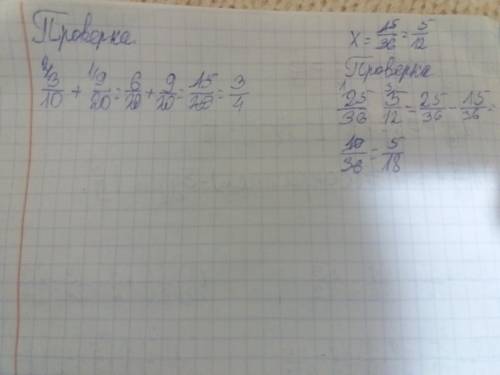 Проверка.
2/3/10 + 1/9/20 = 6/20 + 9/20 = 15/20 = 3/4
x = 15/36 = 5/12
Проверка
1/25/36 3/5/12 = 25/36 - 15/36 =
10/36 = 5/18